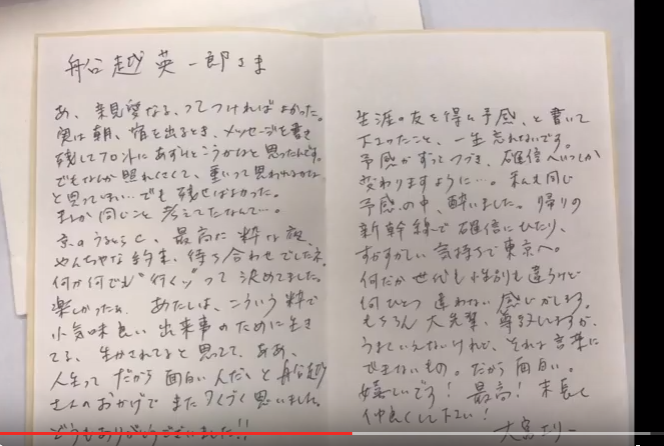 船越英一郎さま
あ、親愛なる、ってつければよかった。
実は朝、宿を出るとき、メッセージを書き
残してフロントにあずけとこうかなと思ったんです。
でもなんか照れくさくて、重いって思われるかな
と思ってしまい…でも残せばよかった。
まさか同じこと考えてたなんて…。
京のうるとらC、最高に粋な夜、
やんちゃな約束、待ち合わせでしたネ。
何が何でも“行くッ”って決めてました。
楽しかったぁ。あたしは、こういう粋で
小気味良い出来事のために生き
てる、生かされてると思ってて、ああ、
人生ってだから面白いんだ、と船越
さんのおかげでまたつくづく思いました。
どうもありがとうございました!!
生涯の友を得た予感、と書いて
下さったこと、一生忘れないです。
予感がずっとつづき、確信へいつしか
変わりますように…。私も同じ
予感の中、酔いました。帰りの
新幹線で確信にひたり、
すがすがしい気持ちで東京へ。
何だか世代も性別も違うけど
何ひとつ違わない感じがします。
もちろん大先輩、尊敬しますが、
うまくいえないけれど、それは言葉に
できないもの。だから面白い。
嬉しいです!最高!末長く
仲良くして下さい!
大宮エリー